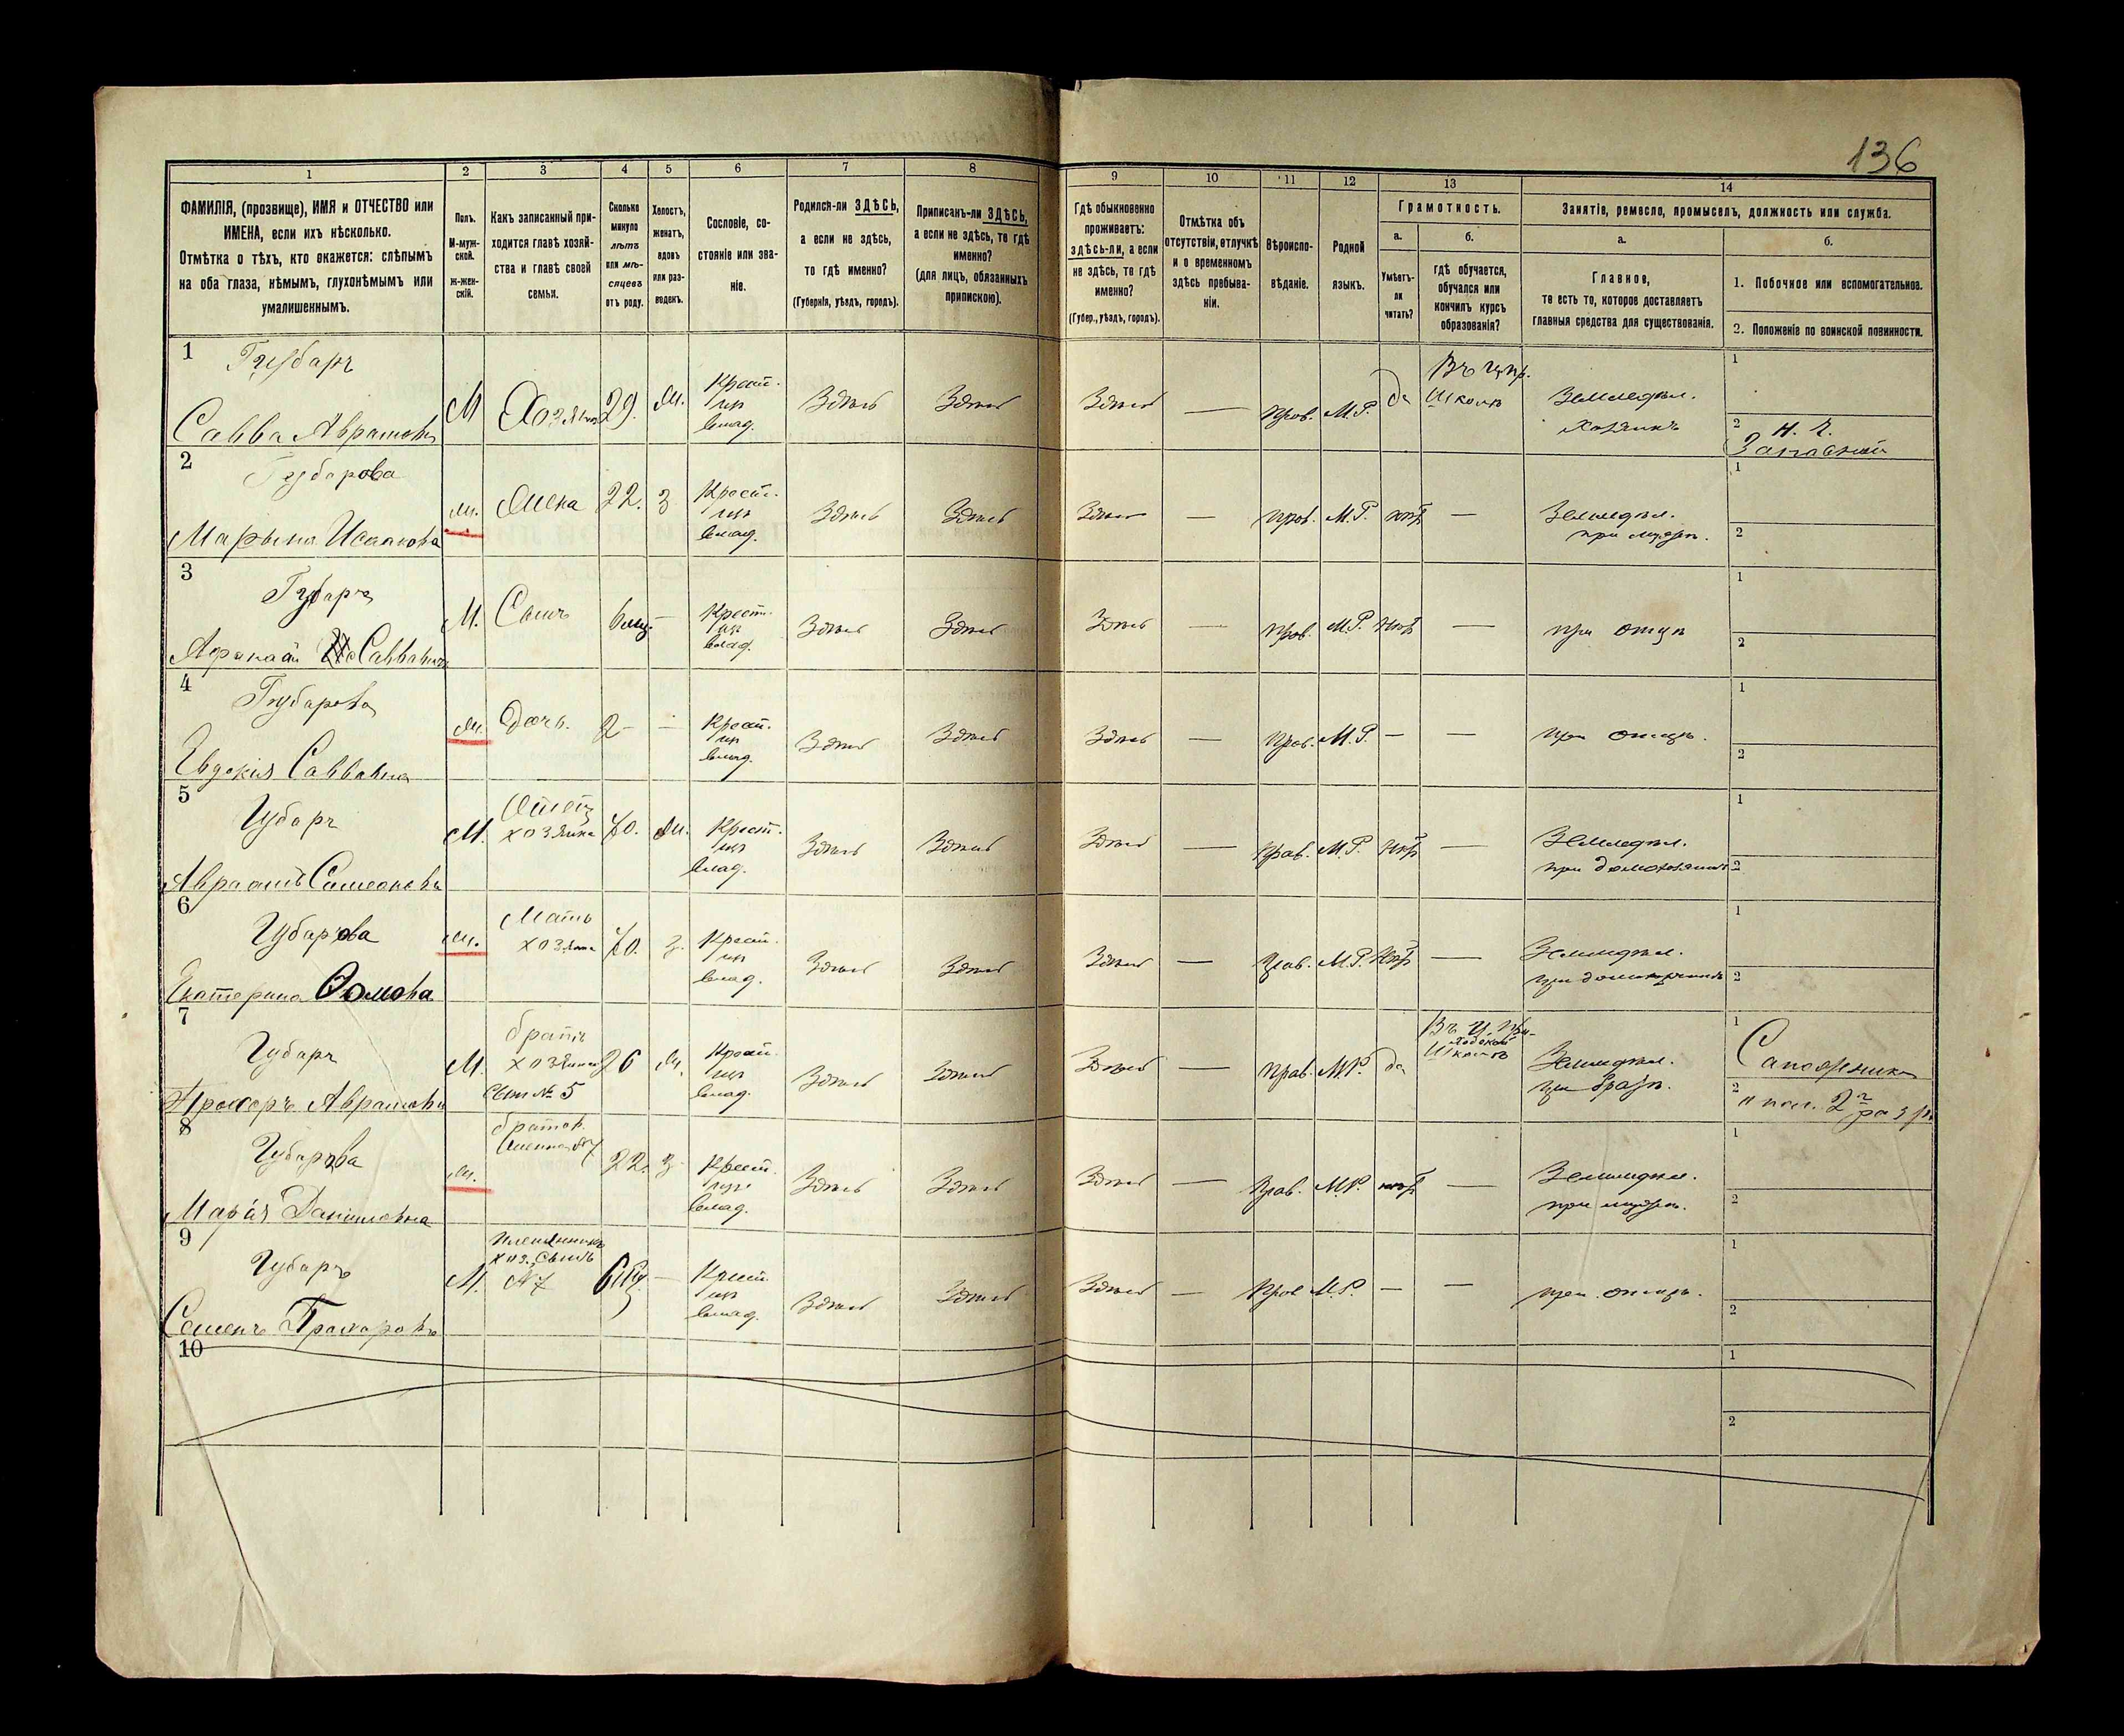 136
1 2 3 4 5 6 7 8 9 10 11 12 13 14
ФАМИЛІЯ, (прозвище), ИМЯ и ОТЧЕСТВО или
ИМЕНА, если ихъ нѣсколько.
Отмѣтка о тѣхъ, кто окажется: слѣпымъ
на оба глаза, нѣмымъ, глухонѣмымъ или
умалишеннымъ.
Полъ.
М-муж-
ской.
Ж-жен-
скій.
Какъ записанный при-
ходится главѣ хозяй-
ства и главѣ своей
семьи.
Сколько
минуло
лѣтъ
или мѣ-
сяцевъ
отъ роду.
Холостъ,
женатъ,
вдовъ
или раз-
веденъ.
Сословіе, со-
стояніе или зва-
ніе.
Родился-ли ЗДѢСЬ,
а если не здѣсь,
то гдѣ именно?
(Губернія, уѣздъ, городъ).
Приписанъ-ли ЗДѢСЬ,
а если не здѣсь, то гдѣ
именно?
(для лицъ, обязанныхъ
припискою).
Гдѣ обыкновенно
проживаетъ:
здѣсь-ли, а если
не здѣсь, то гдѣ
именно?
(Губер., уѣздъ, городъ).
Отмѣтка объ
отсутствіи, отлучкѣ
и о временномъ
здѣсь пребыва-
ніи.
Вѣроиспо-
вѣданіе.
Родной
языкъ.
Грамотность.
а.
Умѣетъ-
ли
читать?
б.
гдѣ обучается,
обучался или
кончилъ курсъ
образованія?
Занятіе, ремесло, промыселъ, должность или служба.
а.
Главное,
то есть то, которое доставляетъ
главныя средства для существованія.
б.
1. Побочное или вспомогательное.
2. Положеніе по воинской повинности.
1 Губарь
Савва Аврамовъ М Хозяинъ 29. Ж. Крест. из влад. Здѣсь Здѣсь Здѣсь — Прав. М.Р. да Въ Школѣ Земледѣл. Хозяинъ 1
2 Запасный
2 Губарова
Марына Исаакова Ж. Жена 22. З Крест. из влад. Здѣсь Здѣсь Здѣсь — Прав. М.Р. нѣт — Земледѣл. при мужѣ. 1
2
3 Губарь
Афанасій Саввинъ М. Сынъ 6 мц — Крест. из влад. Здѣсь Здѣсь Здѣсь — Прав. М.Р. Нѣт — при отцѣ 1
2
4 Губарова
Евдокія Саввина Ж. Дочь. 2 — Крест. из влад. Здѣсь Здѣсь Здѣсь — Прав. М.Р. — — при отцѣ. 1
2
5 Губарь
Авраамъ Симеоновъ М. Отец хозяина 70. Ж. Крест. из влад. Здѣсь Здѣсь Здѣсь — Прав. М.Р. Нѣт — Земледѣл. при домохозяинѣ 1
2
6 Губарова
Екатерина Ж. Мать хозяина 70. З. Крест. из влад. Здѣсь Здѣсь Здѣсь — Прав. М.Р. Нѣт — Земледѣл. при домохозяинѣ 1
2
7 Губарь
Прохоръ Аврамовъ М. братъ хозяина Сын № 5 26 Ж. Крест. из влад. Здѣсь Здѣсь Здѣсь — Прав. М.Р. да Въ Школѣ Земледѣл. при братѣ. 1 Сапожникъ
2
8 Губарова
Марія Даниловна Ж. 22. З Крест. из влад. Здѣсь Здѣсь Здѣсь — Прав. М.Р. нѣт — Земледѣл. при мужѣ. 1
2
9 Губарь
Семенъ Прохоровъ М. Племянникъ хоз. Сынъ №7 6 мц. — Крест. из влад. Здѣсь Здѣсь Здѣсь — Прав М.Р. — — при отцѣ. 1
2
10 1
2